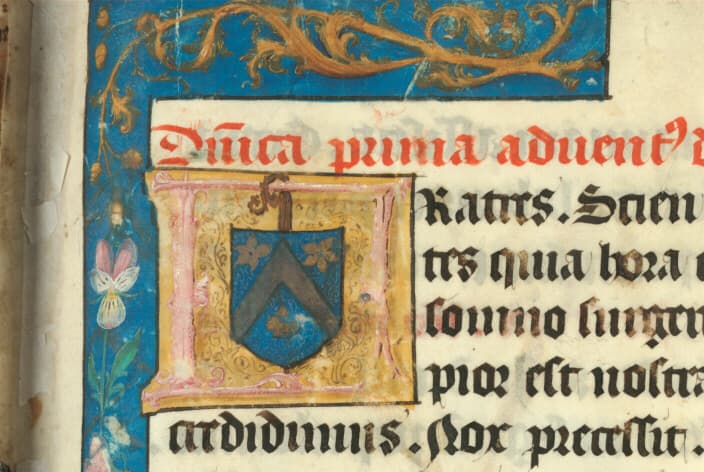 Dñica prima aduentꝰ
FRatres. Scien
tes quia hora
somno surgen
pior est nostra
credidimus. Nox precessit.